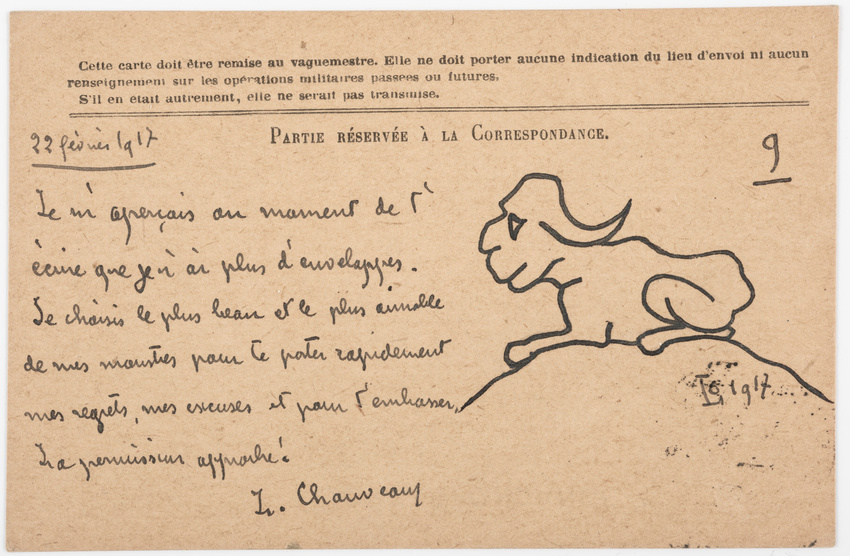 Cette carte doit être remise au vaguemestre. Elle ne doit porter aucune indication du lieu d'envoi ni aucun
renseignement sur les opérations militaires passées ou futures.
S'il en était autrement, elle ne serait pas transmise.
PARTIE RÉSERVÉE À LA CORRESPONDANCE.
22 février 1917
9
Je m'aperçois au moment de t'
écrire que je n'ai plus d'enveloppes.
Je choisis le plus beau et le plus aimable
de mes monstres pour te porter rapidement
mes regrets, mes excuses et pour t'embrasser,
La permission approche!
L. Chauveau
1917